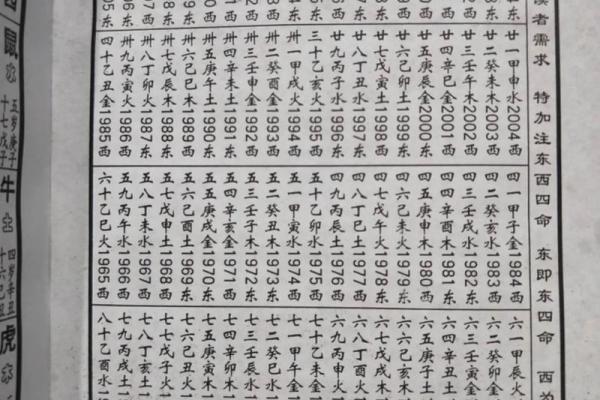 读者需求 特加注东西四命 东即东四命 西为
廿一甲申水2004西
廿二癸未木2003西
廿三壬午木2002东
廿四辛巳金2001西
廿五庚辰金2000东
廿六己卯土1999东
廿七戊寅土1998西
廿八丁丑水1997东
廿九丙子水1996西
三十乙亥火1995西
卅一甲戌火1994西
卅二癸酉金1993西
卅三壬申金1992西
卅四辛未土1991西
卅五庚午土1990东
卅六己巳木1989东
卅七戊辰木1988东
卅八丁卯火1987东
卅九丙寅火1986西
四十乙丑金1985西
四一甲子金1984西
四二癸亥水1983西
四三壬戌水1982东
四四辛酉木1981东
四五庚申木1980西
四六己未火1979东
四七戊午火1978东
四八丁巳土1977西
四九丙辰土1976西
五十乙卯水1975西
五一甲寅水1974西
五二癸丑木1973东
五三壬子木1972东
五四辛亥金1971西
五五庚戌金1970东
五六己酉土1969东
五七戊申土1968西
五八丁未水1967西
五九丙午水1966西
六十乙巳火1965西
六一甲辰火
六二癸卯金
六三壬寅金
六四辛丑土
六五庚子土
六六己亥木
六七戊戌木
六八丁酉火
六九丙申火
七十乙未金
七一甲午金
七二癸巳水
七三壬辰水
七四辛卯木
七五庚寅木
七六己丑火
七七戊子火
七八丁亥土
七九丙戌土
八十乙酉水
鼠
五岁庚子
十七戊子
牛
四岁辛丑
虎